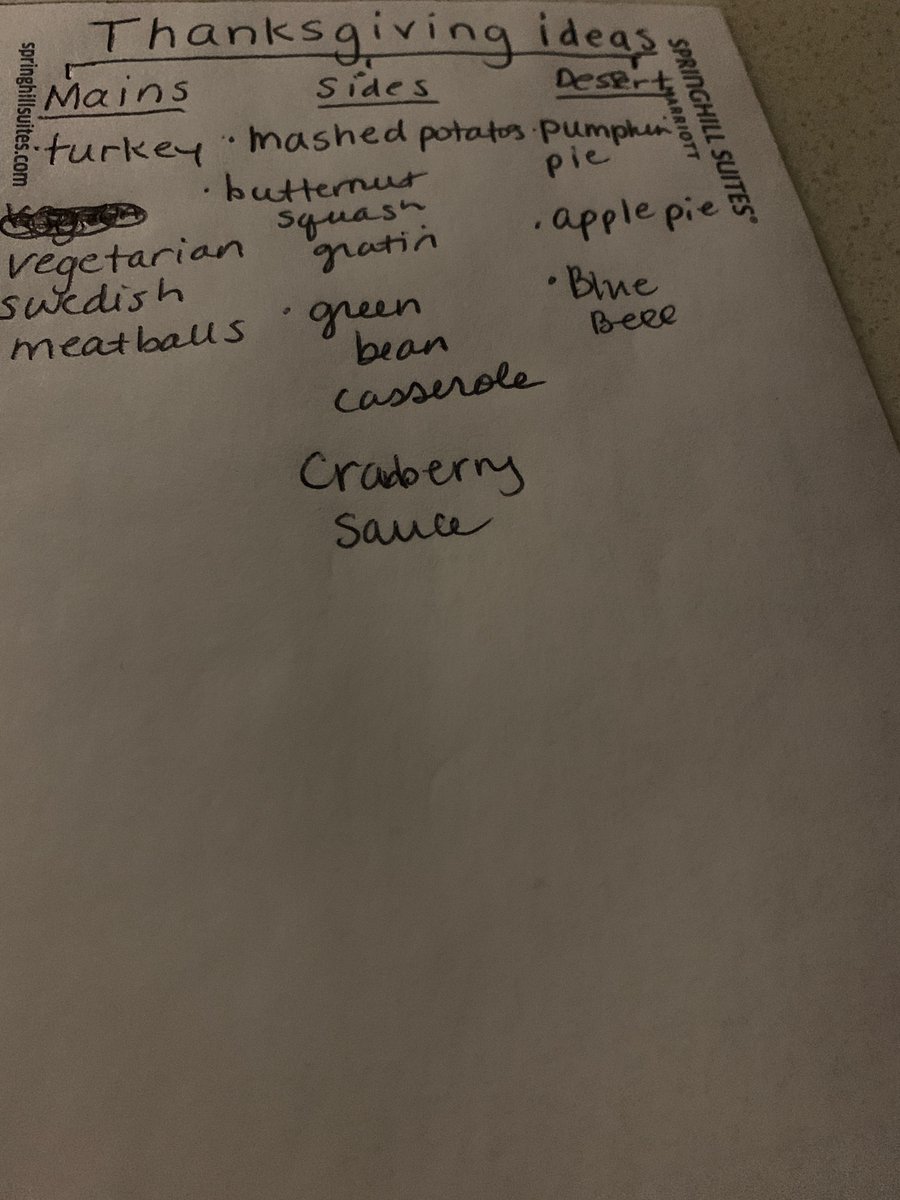 Thanksgiving ideas
springhillsuites.com
SPRINGHILL SUITES®
MARRIOTT
Mains
• turkey
vegetarian
swedish
meatballs
Sides
• mashed potatos
• butternut
squash
gratin
• green
bean
casserole
Cranberry
Sauce
Desert
• pumpkin
pie
• apple pie
• Blue